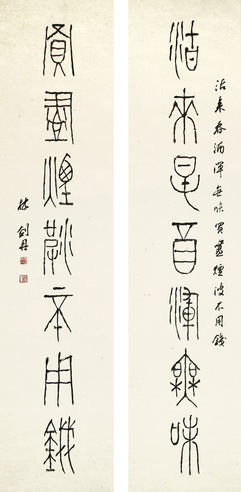 沽來春酒渾無味
買盡煙波不用錢
沽來春酒渾無味買盡煙波不用錢
林劍丹